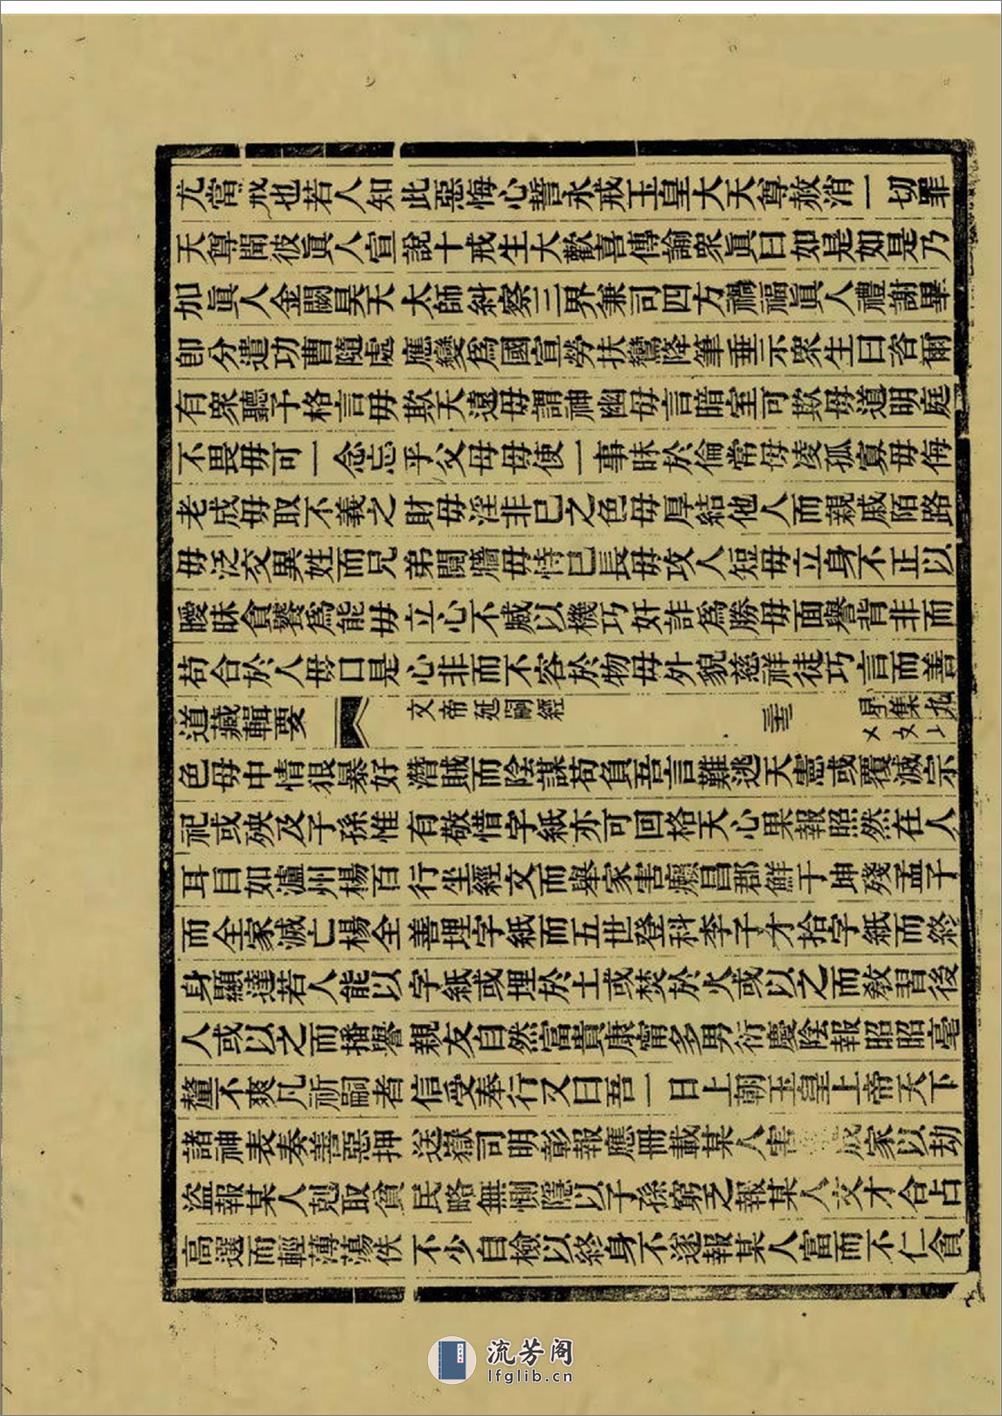 尤當戒也若人知此惡悔心誓永戒玉皇大天尊赦消一切罪
天尊聞彼眞人宣說十戒生大歡喜傳諭衆眞曰如是如是乃
加眞人金闕昊天太師糾察三界兼司四方禍福眞人禮謝畢
卽分遣功曹隨處應變爲國宣勞扶鸞降筆垂示衆生曰咨爾
有衆聽予格言毋欺天遠毋謂神幽毋言暗室可欺毋道明庭
不畏毋可一念忘乎父母毋使一事昧於倫常毋凌孤寡毋侮
老成毋取不義之財毋淫非己之色毋厚結他人而親戚陌路
毋泛交異姓而兄弟鬩牆毋恃己長毋攻人短毋立身不正以
曖昧貪饕爲能毋立心不臧以機巧奸詐爲勝毋面譽背非而
苟合於人毋口是心非而不容於物毋外貌慈祥徒巧言而善
道藏輯要 文帝延嗣經 三三 星集九
色毋中情狠暴好潛賊而陰謀苟負吾言難逃天憲或覆滅宗
祀或殃及子孫惟有敬惜字紙亦可回格天心果報照然在人
耳目如瀘州楊百行坐經文而舉家害癩昌郡鮮于坤殘孟子
而全家滅亡楊全善埋字紙而五世登科李子才拾字紙而終
身顯達若人能以字紙或埋於土或焚於火或以之而敎習後
人或以之而播譽親友自然富貴康甯多男衍慶陰報昭昭毫
釐不爽凡祈嗣者信受奉行又曰吾一日上朝玉皇上帝天下
諸神表奏善惡押送嶽司明彰報應冊載某人害成家以劫
盜報某人剋取貧民略無惻隱以子孫窮乏報某人文才合占
高選而輕薄蕩佚不少自檢以終身不遂報某人富而不仁貪
流芳阁
lfglib.cn